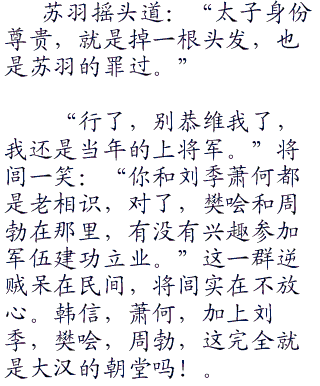 苏羽摇头道：“太子身份
尊贵，就是掉一根头发，也
是苏羽的罪过。”
“行了，别恭维我了，
我还是当年的上将军。”将
闾一笑：“你和刘季萧何都
是老相识，对了，樊哙和周
勃在那里，有没有兴趣参加
军伍建功立业。”这一群逆
贼呆在民间，将闾实在不放
心。韩信，萧何，加上刘
季，樊哙，周勃，这完全就
是大汉的朝堂吗！。